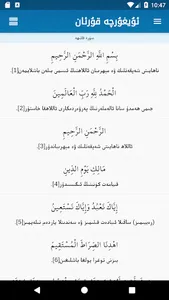 10:47
ئۇيغۇرچە قۇرئان
سۈرە فاتىھە
بِسْمِ اللَّهِ الرَّحْمَٰنِ الرَّحِيمِ
ناھايىتى شەپقەتلىك ۋە مېھرىبان ئاللاھنىڭ ئىسمى بىلەن باشلايمەن[1].
الْحَمْدُ لِلَّهِ رَبِّ الْعَالَمِينَ
جىمى ھەمدۇ سانا ئالەملەرنىڭ پەرۋەردىگارى ئاللاھقا خاستۇر[2].
الرَّحْمَٰنِ الرَّحِيمِ
ئاللاھ ناھايىتى شەپقەتلىك ۋە مېھرىباندۇر[3].
مَالِكِ يَوْمِ الدِّينِ
قىيامەت كۈنىنىڭ ئىگىسىدۇر[4].
إِيَّاكَ نَعْبُدُ وَإِيَّاكَ نَسْتَعِينُ
(رەببىمىز) ساڭىلا ئىبادەت قىلىمىز ۋە سەندىنلا ياردەم تىلەيمىز[5].
اهْدِنَا الصِّرَاطَ الْمُسْتَقِيمَ
بىزنى توغرا يولغا باشلىغىن[6].